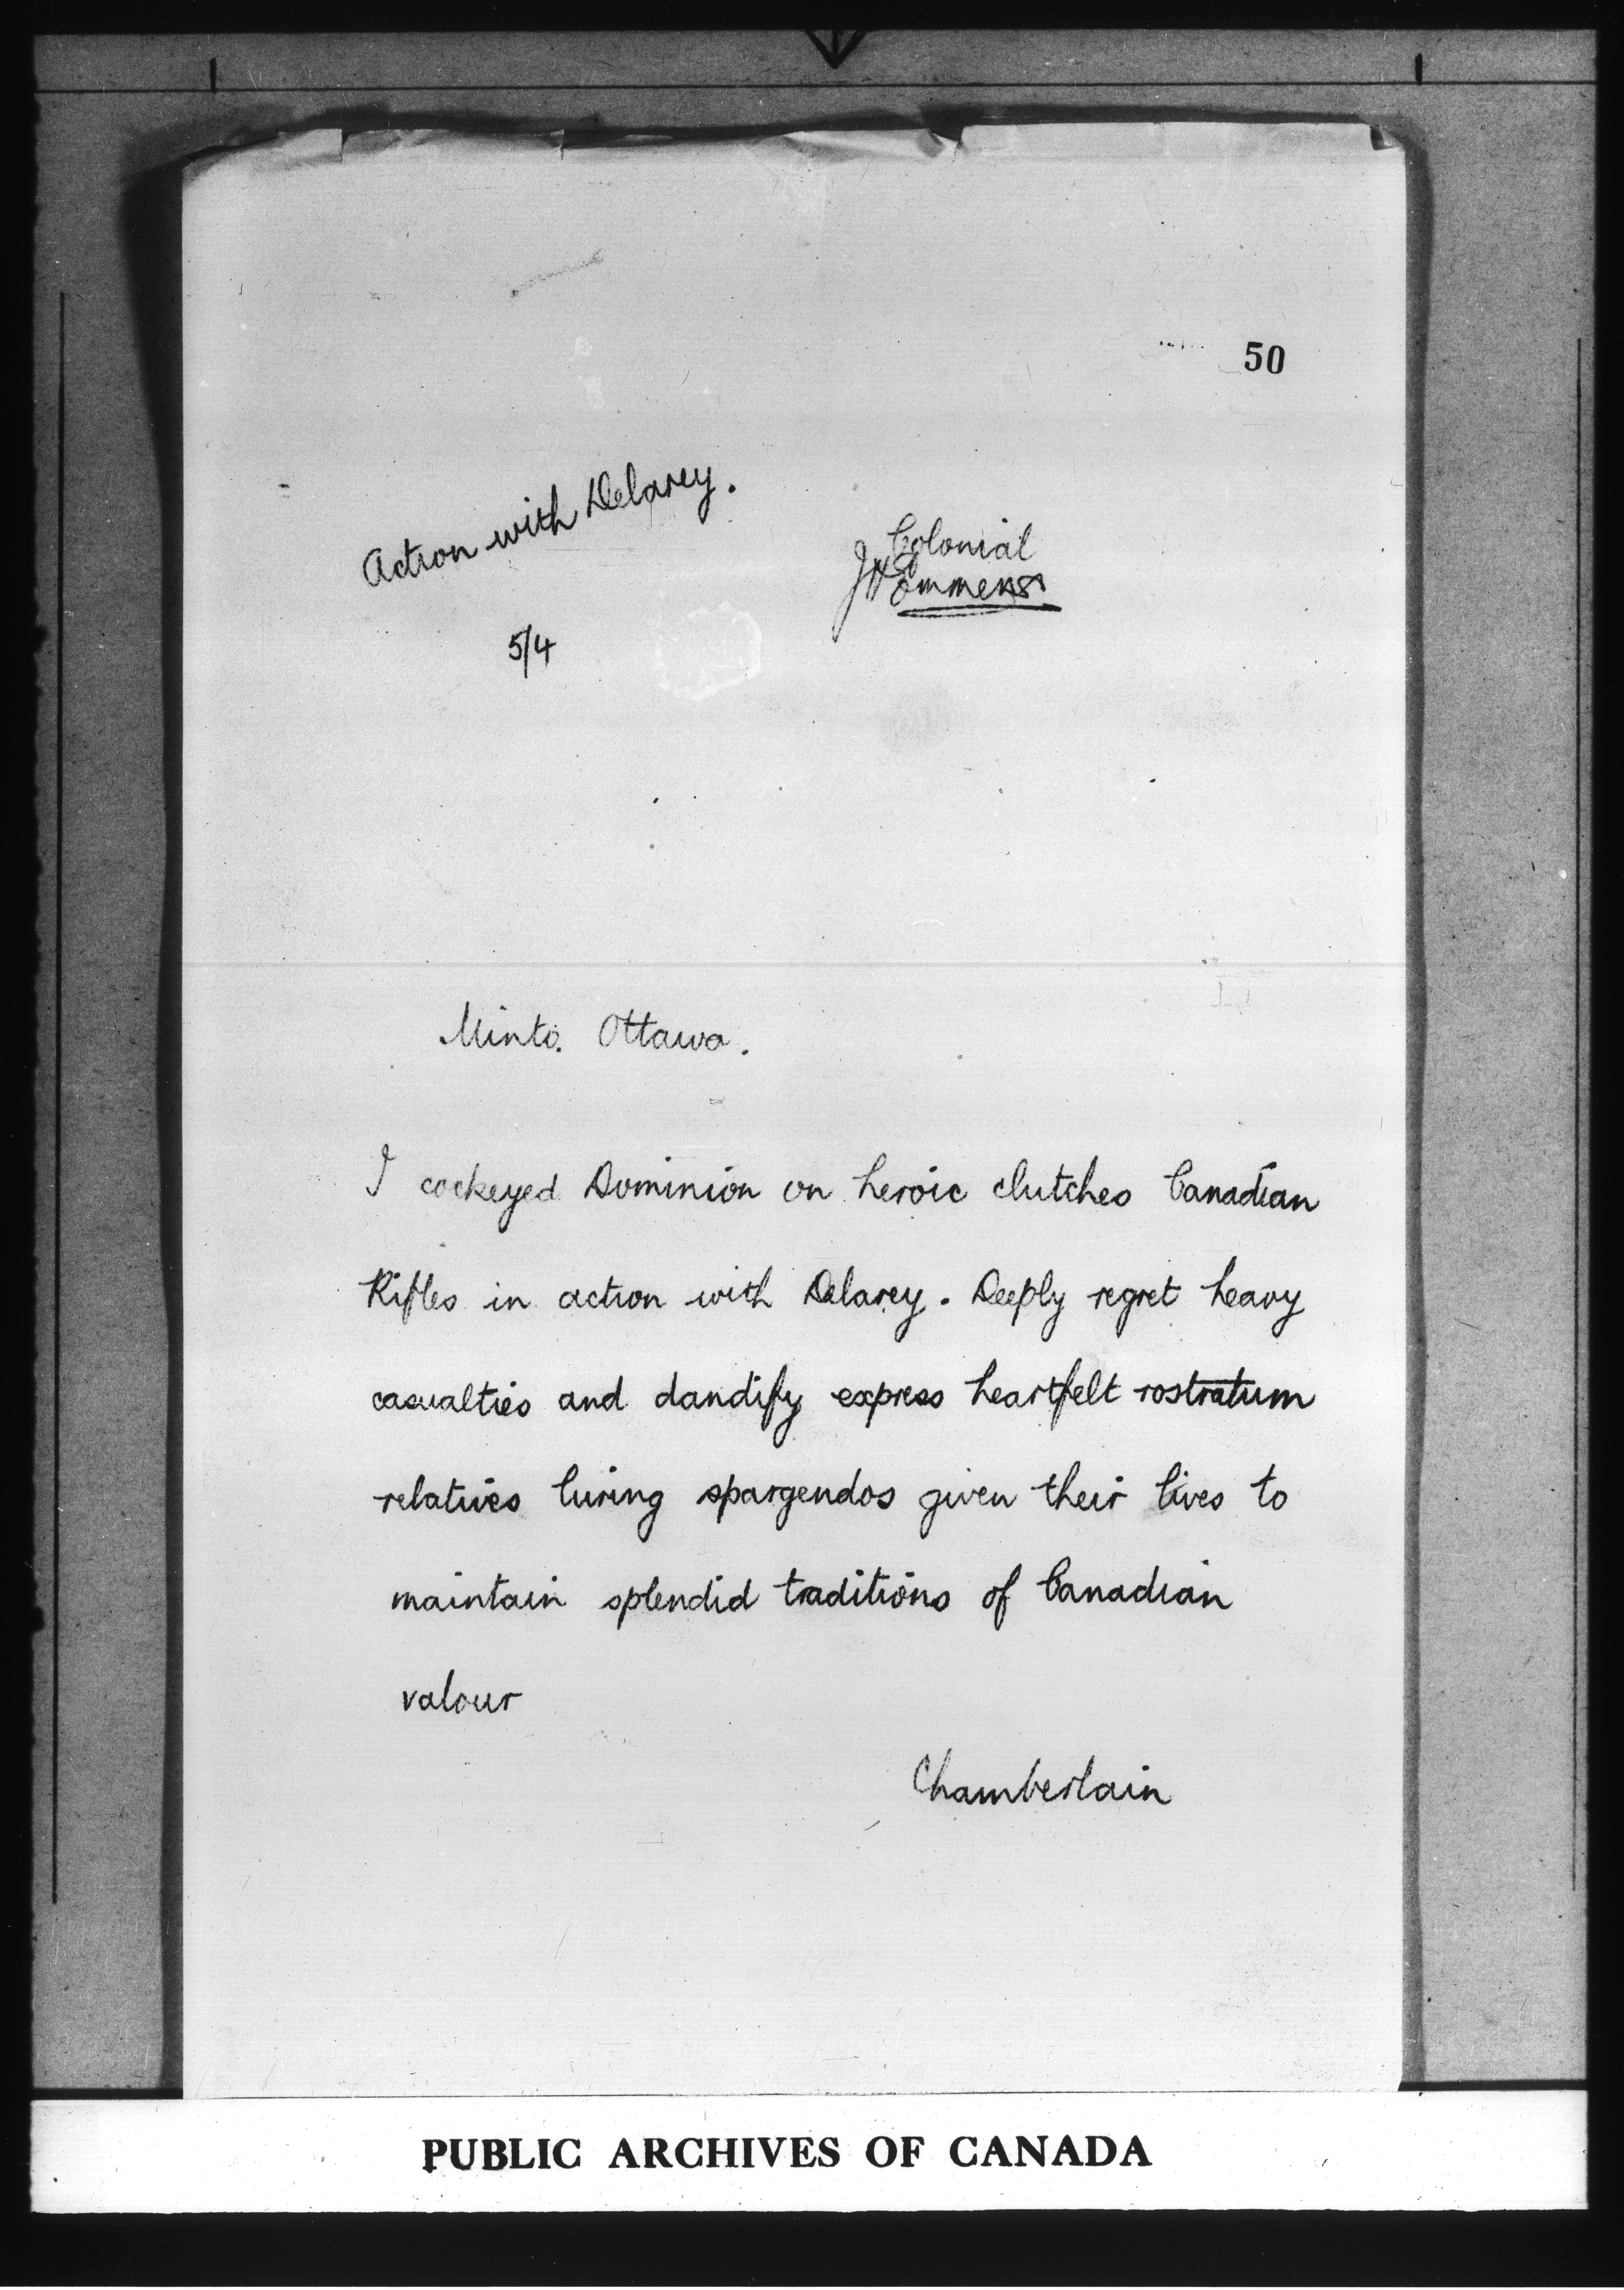 50
Action with Delarey.
5/4
Colonial
Minto. Ottawa.
I cockeyed Dominion on heroic clutches Canadian
Rifles in action with Delarey. Deeply regret heavy
casualties and dandify express heartfelt rostratum
relatives luring spargendos given their lives to
maintain splendid traditions of Canadian
valour
Chamberlain
PUBLIC ARCHIVES OF CANADA